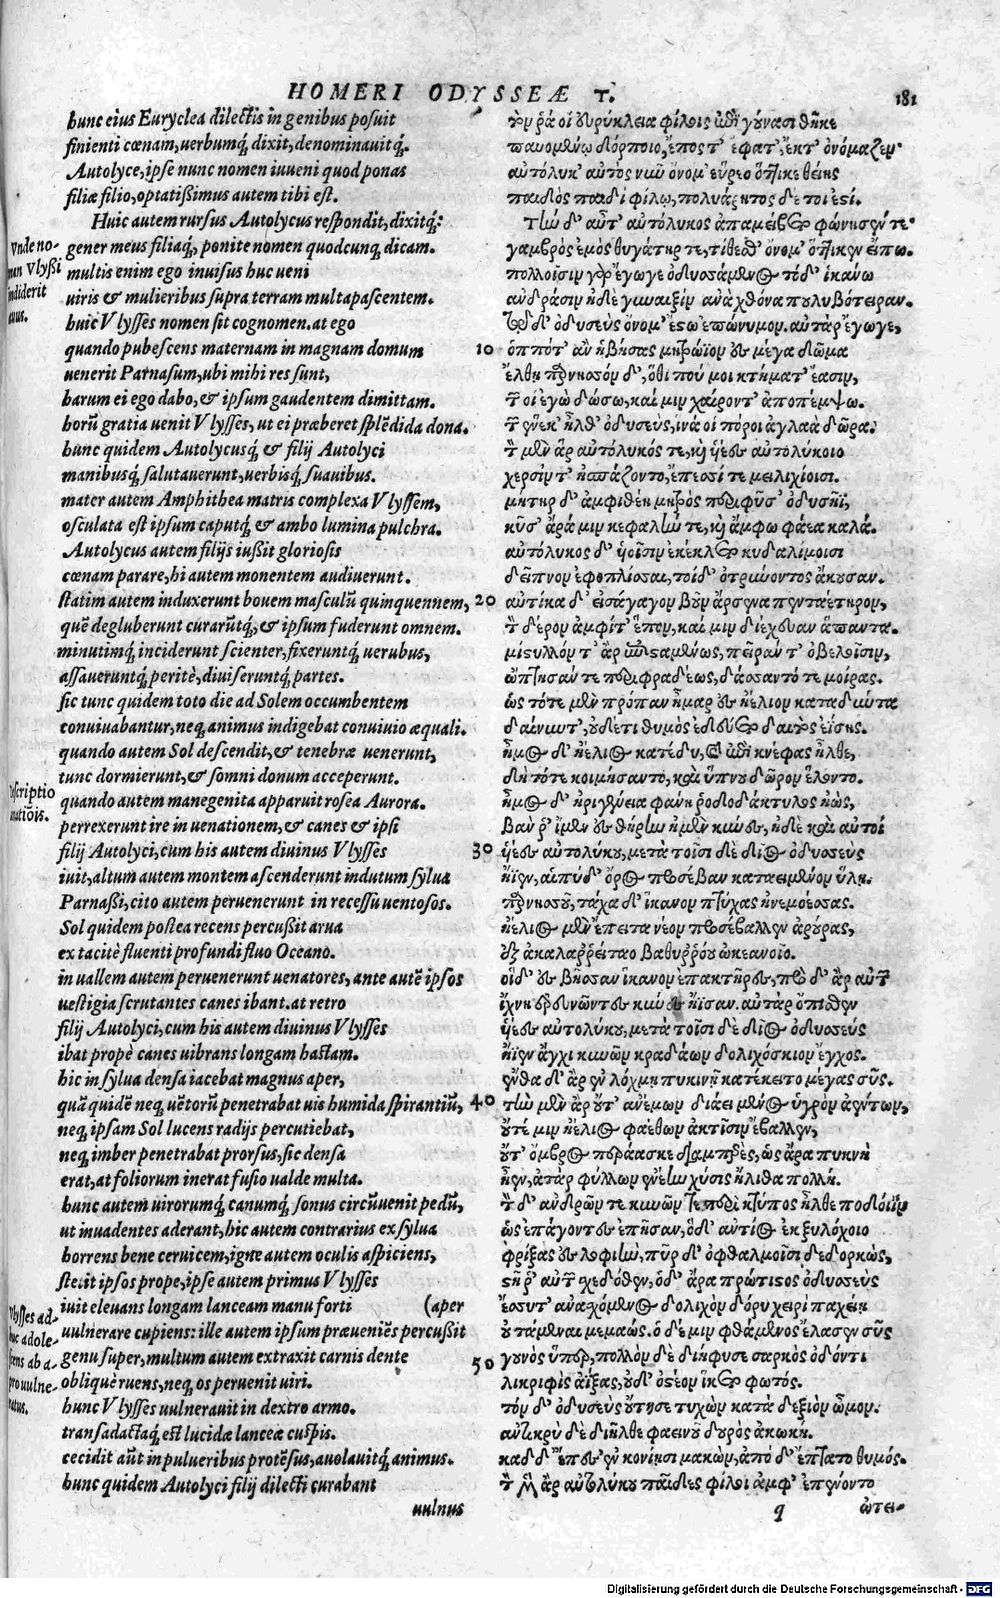 HOMERI ODYSSEÆ T. 181
hunc eius Euryclea dilectis in genibus posuit
finienti cœnam, uerbumq́; dixit, denominauitq́;.
Autolyce, ipse nunc nomen inueni quod ponas
filiæ filio, optatißimus autem tibi est.
Huic autem rursus Autolycus respondit, dixitq́;:
gener meus filiaq́;, ponite nomen quodcunq; dicam.
multis enim ego inuisus huc ueni
uiris & mulieribus supra terram multa pascentem.
huic Vlysses nomen sit cognomen. at ego
quando pubescens maternam in magnam domum
uenerit Parnasum, ubi mihi res sunt,
harum ei ego dabo, & ipsum gaudentem dimittam.
horũ gratia uenit Vlysses, ut ei præberet splẽdida dona.
hunc quidem Autolycusq́; & filij Autolyci
manibusq́; salutauerunt, uerbisq́; suauibus.
mater autem Amphithea matris complexa Vlyssem,
osculata est ipsum caputq́; & ambo lumina pulchra.
Autolycus autem filijs iußit gloriosis
cœnam parare, hi autem monentem audiuerunt.
statim autem induxerunt bouem masculũ quinquennem,
quẽ degluberunt curarũtq́;, & ipsum fuderunt omnem.
minutimq́; inciderunt scienter, fixeruntq́; uerubus,
assaueruntq́; peritè, diuiseruntq́; partes.
sic tunc quidem toto die ad Solem occumbentem
conuiuabantur, neq; animus indigebat conuiuio æquali.
quando autem Sol descendit, & tenebræ uenerunt,
tunc dormierunt, & somni donum acceperunt.
quando autem manegenita apparuit rosea Aurora.
perrexerunt ire in uenationem, & canes & ipsi
filij Autolyci, cum his autem diuinus Vlysses
iuit, altum autem montem ascenderunt indutum sylua
Parnaßi, cito autem peruenerunt in recessu uentosos.
Sol quidem postea recens percußit arua
ex tacitè fluenti profundifluo Oceano.
in uallem autem peruenerunt uenatores, ante autẽ ipsos
uestigia scrutantes canes ibant. at retro
filij Autolyci, cum his autem diuinus Vlysses
ibat propè canes uibrans longam hastam.
hic in sylua densa iacebat magnus aper,
quã quidẽ neq; uẽtorũ penetrabat uis humida spirantiũ,
neq; ipsam Sol lucens radijs percutiebat,
neq; imber penetrabat prorsus, sic densa
erat, at foliorum inerat fusio ualde multa.
hunc autem uirorumq́; canumq́; sonus circũuenit pedũ,
ut inuadentes aderant, hic autem contrarius ex sylua
horrens bene ceruicem, igne autem oculis aspiciens,
stetit ipsos prope, ipse autem primus Vlysses
iuit eleuans longam lanceam manu forti (aper
uulnerare cupiens: ille autem ipsum præueniẽs percußit
genu super, multum autem extraxit carnis dente
obliquè ruens, neq; os peruenit uiri.
hunc Vlysses uulnerauit in dextro armo.
transadactaq́; est lucidæ lanceæ cuspis.
cecidit aũt in pulueribus protẽsus, auolauitq́; animus.
hunc quidem Autolyci filij dilecti curabant
uulnus
Vnde no-
men Vlyßi
indiderit
auus.
Descriptio
Vlysses ad-
huc adole-
scens ab a-
pro uulne-
ratus.
τόν ῥά οἱ εὐρύκλεια φίλοις ἐπὶ γούνασι θῆκε
παυομένῳ δόρποιο, ἔπος τ' ἔφατ', ἔκτ' ὀνόμαζεν·
αὐτόλυκ' αὐτὸς νῦν ὄνομ' εὕρεο ὅττικε θείης
παιδὸς παιδὶ φίλῳ, πολυάρητος δέ τοι ἐσί.
Τὸν δ' αὖτ' αὐτόλυκος ἀπαμείβετο φώνησέν τε·
γαμβρὸς ἐμὸς θυγάτηρ τε, τίθεσθ' ὄνομ' ὅττικεν εἴπω.
πολλοῖσιν γὰρ ἔγωγε ὀδυσσάμενος τόδ' ἱκάνω
ἀνδράσιν ἠδὲ γυναιξὶν ἀνὰ χθόνα πουλυβότειραν.
τῷ δ' ὀδυσεὺς ὄνομ' ἔστω ἐπώνυμον. αὐτὰρ ἔγωγε,
10 ὁππότ' ἂν ἡβήσας μητρώϊον ἐς μέγα δῶμα
ἔλθῃ παρνησόν δ', ὅθι πού μοι κτήματ' ἔασιν,
τῶν οἱ ἐγὼ δώσω, καί μιν χαίροντ' ἀποπέμψω.
τῶν ἕνεκ' ἦλθ' ὀδυσεὺς, ἵνα οἱ πόροι ἀγλαὰ δῶρα.
τὸν μὲν ἂρ αὐτόλυκός τε, καὶ υἱέες αὐτολύκοιο
χερσίν τ' ἠσπάζοντο, ἔπεσσί τε μειλιχίοισι.
μήτηρ δ' ἀμφιθέη μητρὸς περιφῦσ' ὀδυσῆϊ,
κῦσ' ἄρά μιν κεφαλήν τε, καὶ ἄμφω φάεα καλά.
αὐτόλυκος δ' υἱοῖσιν ἐκέκλετο κυδαλίμοισι
δεῖπνον ἐφοπλίσσαι, τοὶ δ' ὀτρύνοντος ἄκουσαν.
20 αὐτίκα δ' εἰσάγαγον βοῦν ἄρσενα πενταέτηρον,
τὸν δέρον ἀμφίτ' ἕπον, καί μιν διέχευαν ἅπαντα.
μίστυλλόν τ' ἂρ ἐπισταμένως, πεῖράν τ' ὀβελοῖσιν,
ὤπτησάν τε περιφραδέως, δάσσαντό τε μοίρας.
ὣς τότε μὲν πρόπαν ἦμαρ ἐς ἠέλιον καταδύντα
δαίνυντ', οὐδέ τι θυμὸς ἐδεύετο δαιτὸς ἐΐσης.
ἦμος δ' ἠέλιος κατέδυ, καὶ ἐπὶ κνέφας ἦλθε,
δὴ τότε κοιμήσαντο, καὶ ὕπνου δῶρον ἕλοντο.
ἦμος δ' ἠριγένεια φάνη ῥοδοδάκτυλος ἠὼς,
βάν ῥ' ἴμεν ἐς θήρην ἠμὲν κύνες, ἠδὲ καὶ αὐτοὶ
30 υἱέες αὐτολύκου, μετὰ τοῖσι δὲ δῖος ὀδυσσεὺς
ἤϊεν, αἰπὺ δ' ὄρος προσέβαν καταειμένον ὕλῃ.
παρνησοῦ, τάχα δ' ἵκανον πτύχας ἠνεμοέσσας.
ἠέλιος μὲν ἔπειτα νέον προσέβαλλεν ἀρούρας,
ἐξ ἀκαλαρρείταο βαθυρρόου ὠκεανοῖο.
οἱ δ' ἐς βῆσσαν ἵκανον ἐπακτῆρες, πρὸ δ' ἂρ αὐτῶν
ἴχνη ἐρευνῶντες κύνες ἤϊσαν. αὐτὰρ ὄπισθεν
υἱέες αὐτολύκου, μετὰ τοῖσι δὲ δῖος ὀδυσσεὺς
ἤϊεν ἄγχι κυνῶν κραδάων δολιχόσκιον ἔγχος.
ἔνθα δ' ἂρ ἐν λόχμῃ πυκινῇ κατέκειτο μέγας σῦς.
40 τὴν μὲν ἂρ οὔτ' ἀνέμων διάει μένος ὑγρὸν ἀέντων,
οὔτέ μιν ἠέλιος φαέθων ἀκτῖσιν ἔβαλλεν,
οὔτ' ὄμβρος περάασκε διαμπερὲς, ὣς ἄρα πυκνὴ
ἦεν, ἀτὰρ φύλλων ἐνέην χύσις ἤλιθα πολλή.
τὸν δ' ἀνδρῶν τε κυνῶν τε περὶ κτύπος ἦλθε ποδοῖϊν
ὡς ἐπάγοντες ἐπῆσαν, ὁ δ' ἀντίος ἐκ ξυλόχοιο
φρίξας εὖ λοφιὴν, πῦρ δ' ὀφθαλμοῖσι δεδορκὼς,
στῆ ῥ' αὐτῶν σχεδόθεν, ὁ δ' ἄρα πρώτιστος ὀδυσσεὺς
ἔσσυτ' ἀνασχόμενος δολιχὸν δόρυ χειρὶ παχείῃ
οὐτάμεναι μεμαώς. ὁ δέ μιν φθάμενος ἔλασεν σῦς
50 γουνὸς ὕπερ, πολλὸν δὲ διήφυσε σαρκὸς ὀδόντι
λικριφὶς ἀΐξας, οὐδ' ὀστέον ἵκετο φωτός.
τὸν δ' ὀδυσεὺς οὔτησε τυχὼν κατὰ δεξιὸν ὦμον.
ἀντικρὺ δὲ διῆλθε φαεινοῦ δουρὸς ἀκωκή.
καδ δ' ἔπεσ' ἐν κονίῃσι μακὼν, ἀπὸ δ' ἔπτατο θυμός.
τὸν μὲν ἂρ αὐτολύκου παῖδες φίλοι ἀμφ' ἐπένοντο
q ὠτει-
Digitalisierung gefördert durch die Deutsche Forschungsgemeinschaft - DFG